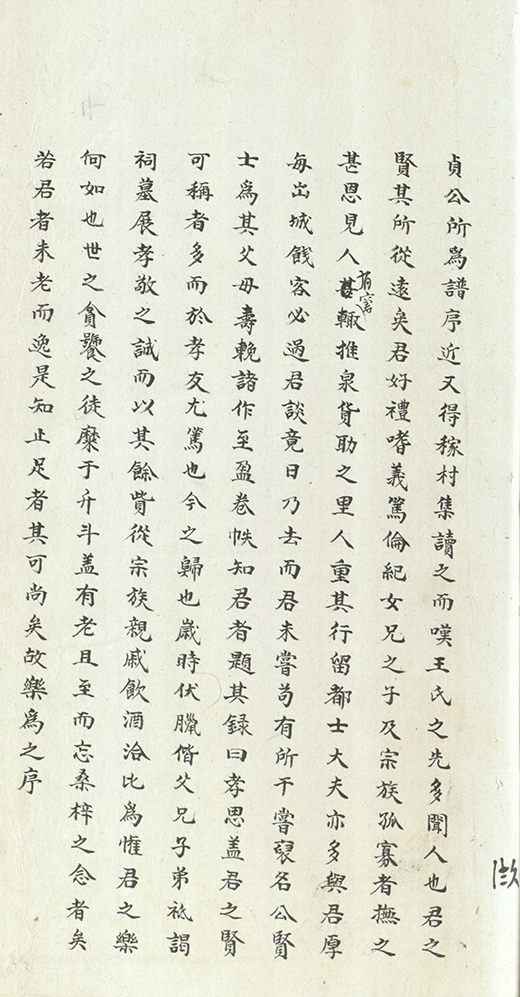 貞公所爲譜序近又得稼村集讀之而嘆王氏之先多聞人也君之
賢其所從遠矣君好禮嗜義篤倫紀女兄之子及宗族孤寡者撫之
甚思見人有窘輙推泉貨助之里人重其行留都士大夫亦多與君厚
每出城餞客必過君談竟日乃去而君未嘗苟有所干嘗裒名公賢
士爲其父母壽輓諸作至盈卷帙知君者題其録曰孝思盖君之賢
可稱者多而於孝友尤篤也今之歸也嵗時伏臘偕父兄子弟祗謁
祠墓展孝敬之誠而以其餘貲從宗族親戚飲酒洽比爲懽君之樂
何如也世之貪饕之徒糜于升斗盖有老且至而忘桑梓之念者矣
若君者未老而逸是知止足者其可尚矣故樂爲之序